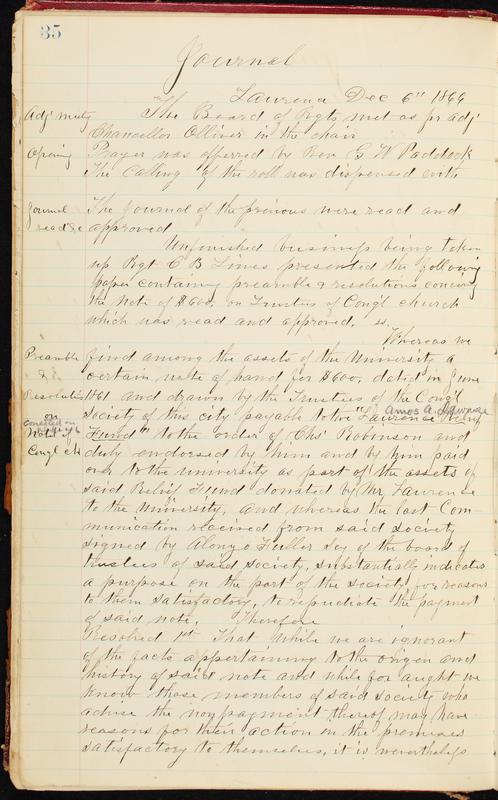 35
Journal
Lawrence Dec 6" 1866
Adj' meetg The Board of Rgts met as pr adj
Chancellor Olliver in the chair
Opening Prayer was offerred by Rev G W Paddock
The Calling of the roll was dispensed with
Journal The Journal of the previous were read and
read &c approved
Unfinished business being taken
up Rgt C B Lines presented the following
paper containing preamble & resolutions concing
the Note of $600. on Trustees of Cong'l church
which was read and approved. ss.
Whereas we
Preamble find among the assets of the University a
& certain note of hand for $600. dated in June
Resolution 1861 and drawn by the Trustees of the Cong'l
on Society of this city payable to the "Lawrence
Amos A. Lawrence
Note of Fund" to the order of Chs' Robinson and
Cong'l ch duly endorsed by him and by him paid
over to the university as part of the assets of
said Relief Fund donated by Mr Lawrence
to the University. And whereas the last Com-
munication received from said society
signed by Alonzo Fuller Scy of the board of
trustees of said society, substantially indicates
a purpose on the part of the society, for reasons
to them satisfactory, to repudiate the payment
of said note, Therefore
Resolved 1st That while we are ignorant
of the facts appertaining to the origen and
history of said note and while for aught we
know those members of said society who
advise the nonpayment thereof may have
reasons for their action in the premises
satisfactory to themselves, it is nevertheless